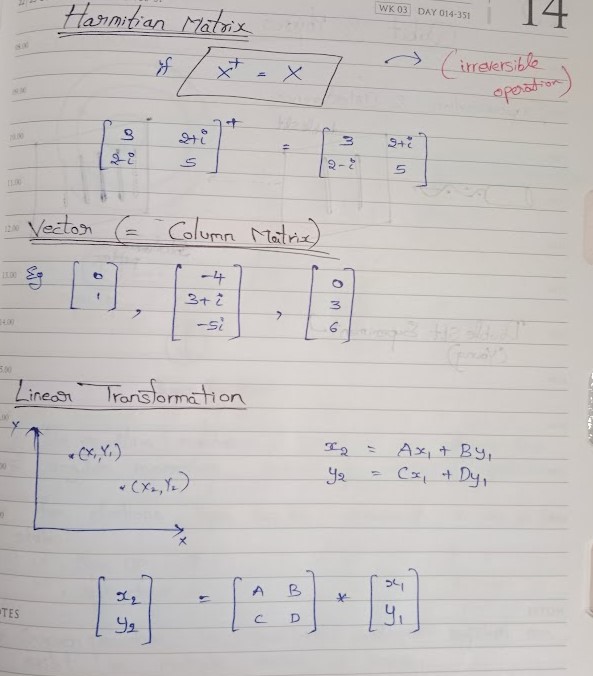 WK 03 DAY 014-351 14
Harmitian Matrix
if X⁺ = X → (irreversible operation)
[3 2+i; 2-i 5]⁺ = [3 2+i; 2-i 5]
Vector (= Column Matrix)
Eg [0; 1], [-4; 3+i; -5i], [0; 3; 6]
Linear Transformation
Y
(X₁,Y₁)
(X₂,Y₂)
X
x₂ = Ax₁ + By₁
y₂ = Cx₁ + Dy₁
[x₂; y₂] = [A B; C D] * [x₁; y₁]